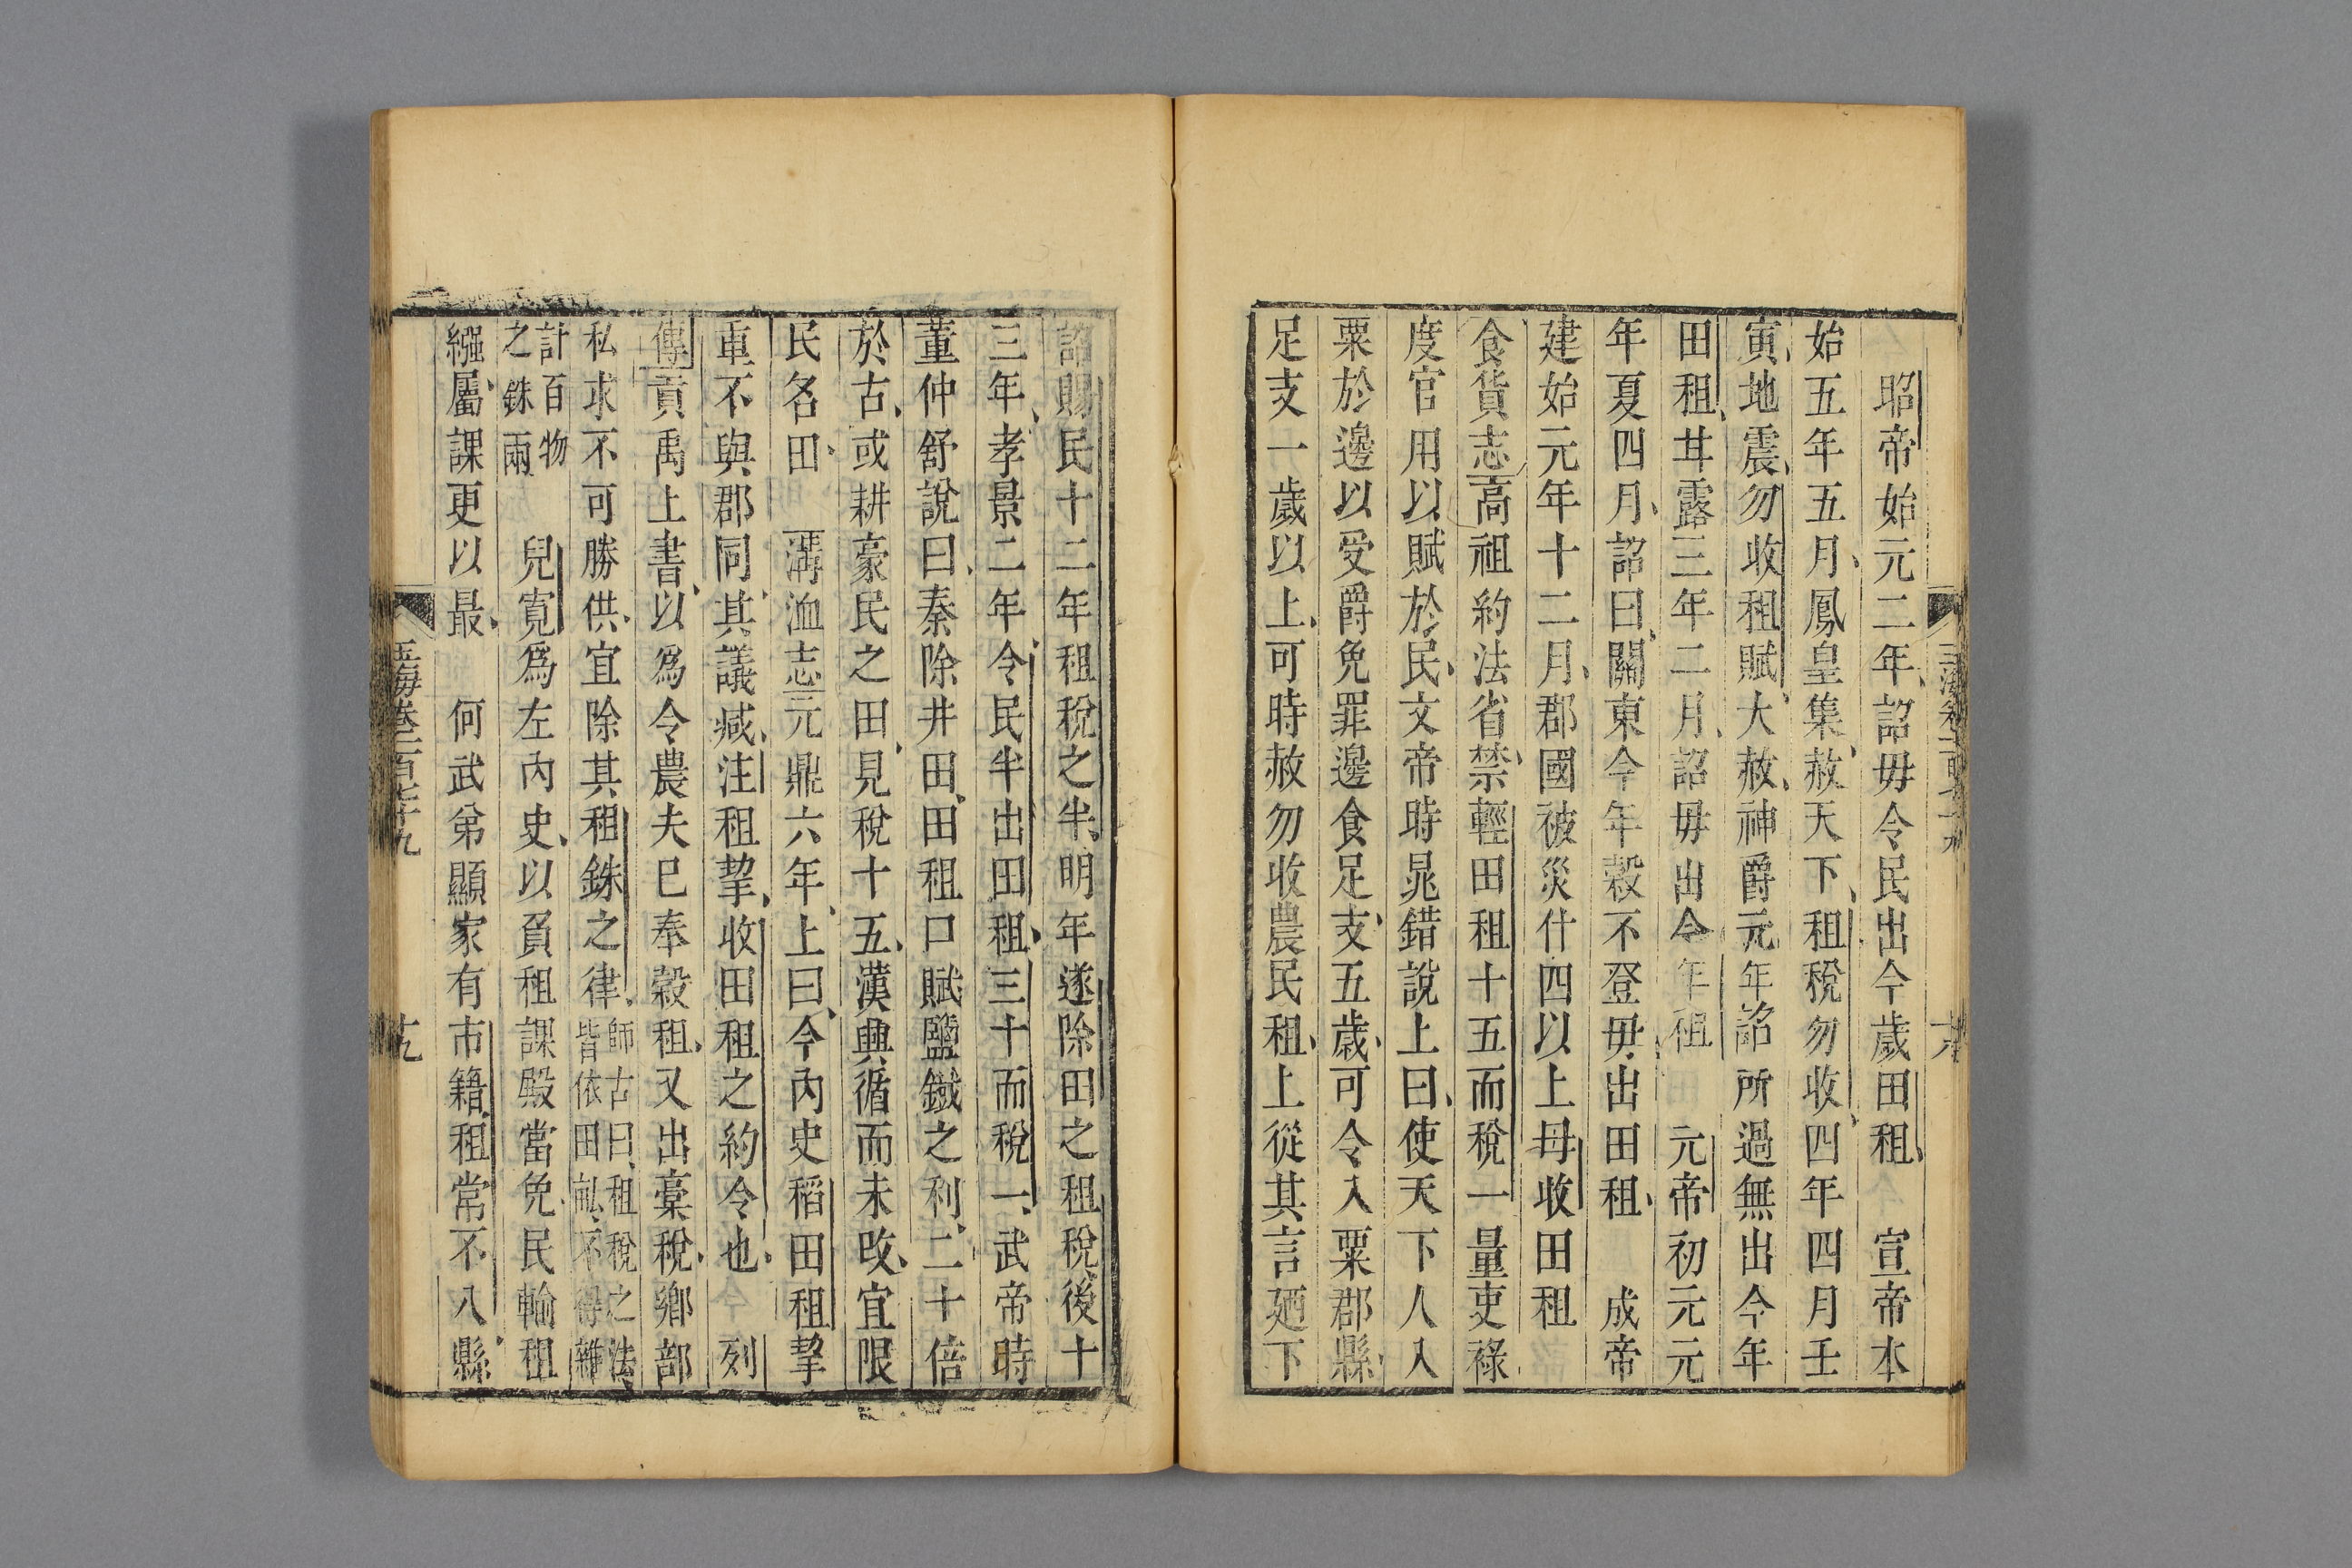 昭帝始元二年詔毋令民出今歲田租　宣帝本
始五年五月鳳皇集赦天下租稅勿收四年四月壬
寅地震勿收租賦大赦神爵元年詔所過無出今年
田租甘露三年二月詔毋出今年租　元帝初元元
年夏四月詔曰關東今年穀不登毋出田租　成帝
建始元年十二月郡國被災什四以上毋收田租
食貨志高祖約法省禁輕田租十五而稅一量吏祿
度官用以賦於民文帝時晁錯說上曰使天下人入
粟於邊以受爵免罪邊食足支五歲可令入粟郡縣
足支一歲以上可時赦勿收農民租上從其言廼下
詔賜民十二年租稅之半明年遂除田之租稅後十
三年孝景二年令民半出田租三十而稅一武帝時
董仲舒說曰秦除井田田租口賦鹽鐵之利二十倍
於古或耕豪民之田見稅十五漢興循而未改宜限
民名田　溝洫志元鼎六年上曰今內史稻田租挈
重不與郡同其議減注租挈收田租之約令也　列
傳貢禹上書以爲令農夫巳奉穀租又出稾稅鄉部
私求不可勝供宜除其租銖之律師古曰租稅之法皆依田畝不得雜
計百物之銖兩　兒寬爲左內史以負租課殿當免民輸租
繦屬課更以最　何武弟顯家有市籍租常不入縣
玉海卷一百七十九